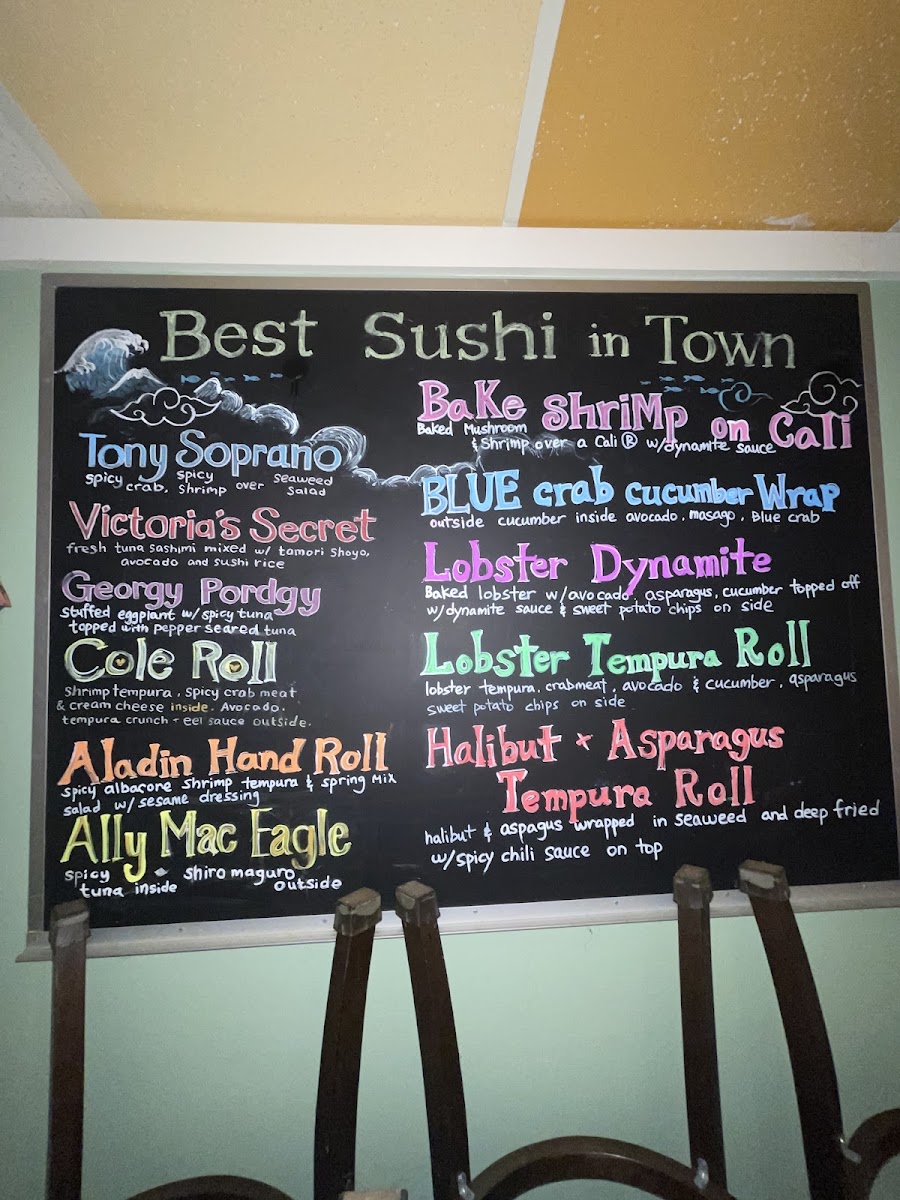 Best Sushi in Town
Tony Soprano
spicy crab, spicy shrimp over seaweed salad
Victoria's Secret
fresh tuna sashimi mixed w/ tamori shoyo,
avocado and sushi rice
Georgy Pordgy
stuffed eggplant w/ spicy tuna
topped with pepper seared tuna
Cole Roll
shrimp tempura, spicy crab meat
& cream cheese inside. Avocado.
tempura crunch + eel sauce outside.
Aladin Hand Roll
spicy albacore shrimp tempura & spring mix
salad w/ sesame dressing
Ally Mac Eagle
spicy tuna inside • shiro maguro outside
Bake Shrimp on Cali
Baked Mushroom
& Shrimp over a Cali ® w/dynamite sauce
BLUE crab cucumber Wrap
outside cucumber inside avocado, masago, Blue crab
Lobster Dynamite
Baked lobster w/avocado, asparagus, cucumber topped off
w/dynamite sauce & sweet potato chips on side
Lobster Tempura Roll
lobster tempura, crabmeat, avocado & cucumber, asparagus
sweet potato chips on side
Halibut x Asparagus
Tempura Roll
halibut & aspagus wrapped in seaweed and deep fried
w/spicy chili sauce on top